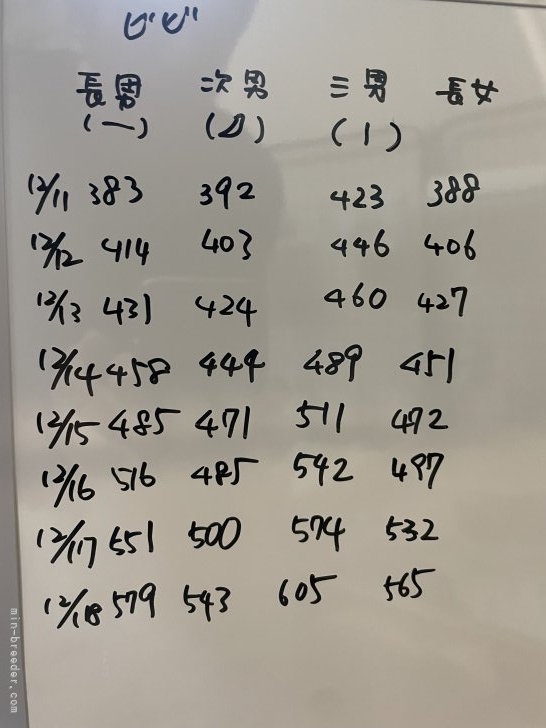 ビビ
長男 次男 三男 長女
(一) (力) (1)
12/11 383 392 423 388
12/12 414 403 446 406
12/13 431 424 460 427
12/14 458 444 489 451
12/15 485 471 511 472
12/16 516 485 542 497
12/17 551 500 574 532
12/18 579 543 605 565
min-breeder.com